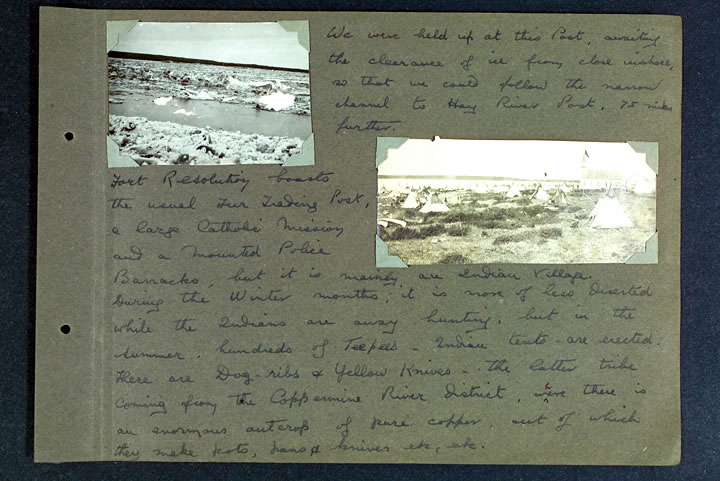 We were held up at this Post, awaiting
the clearance of ice from close inshore,
so that we could follow the narrow
channel to Hay River Post, 75 miles
further.
Fort Resolution boasts
the usual Fur Trading Post,
a large Catholic Mission
and a Mounted Police
Barracks, but it is mainly, are Indian Village.
During the Winter months, it is more of less deserted
while the Indians are away hunting, but in the
summer, hundreds of Teepees - Indian tents - are erected.
There are Dog-ribs & Yellow Knives - the latter tribe
coming from the Coppermine River District, were there is
an enormous outcrop of pure copper, out of which
they make pots, pans & knives etc, etc.